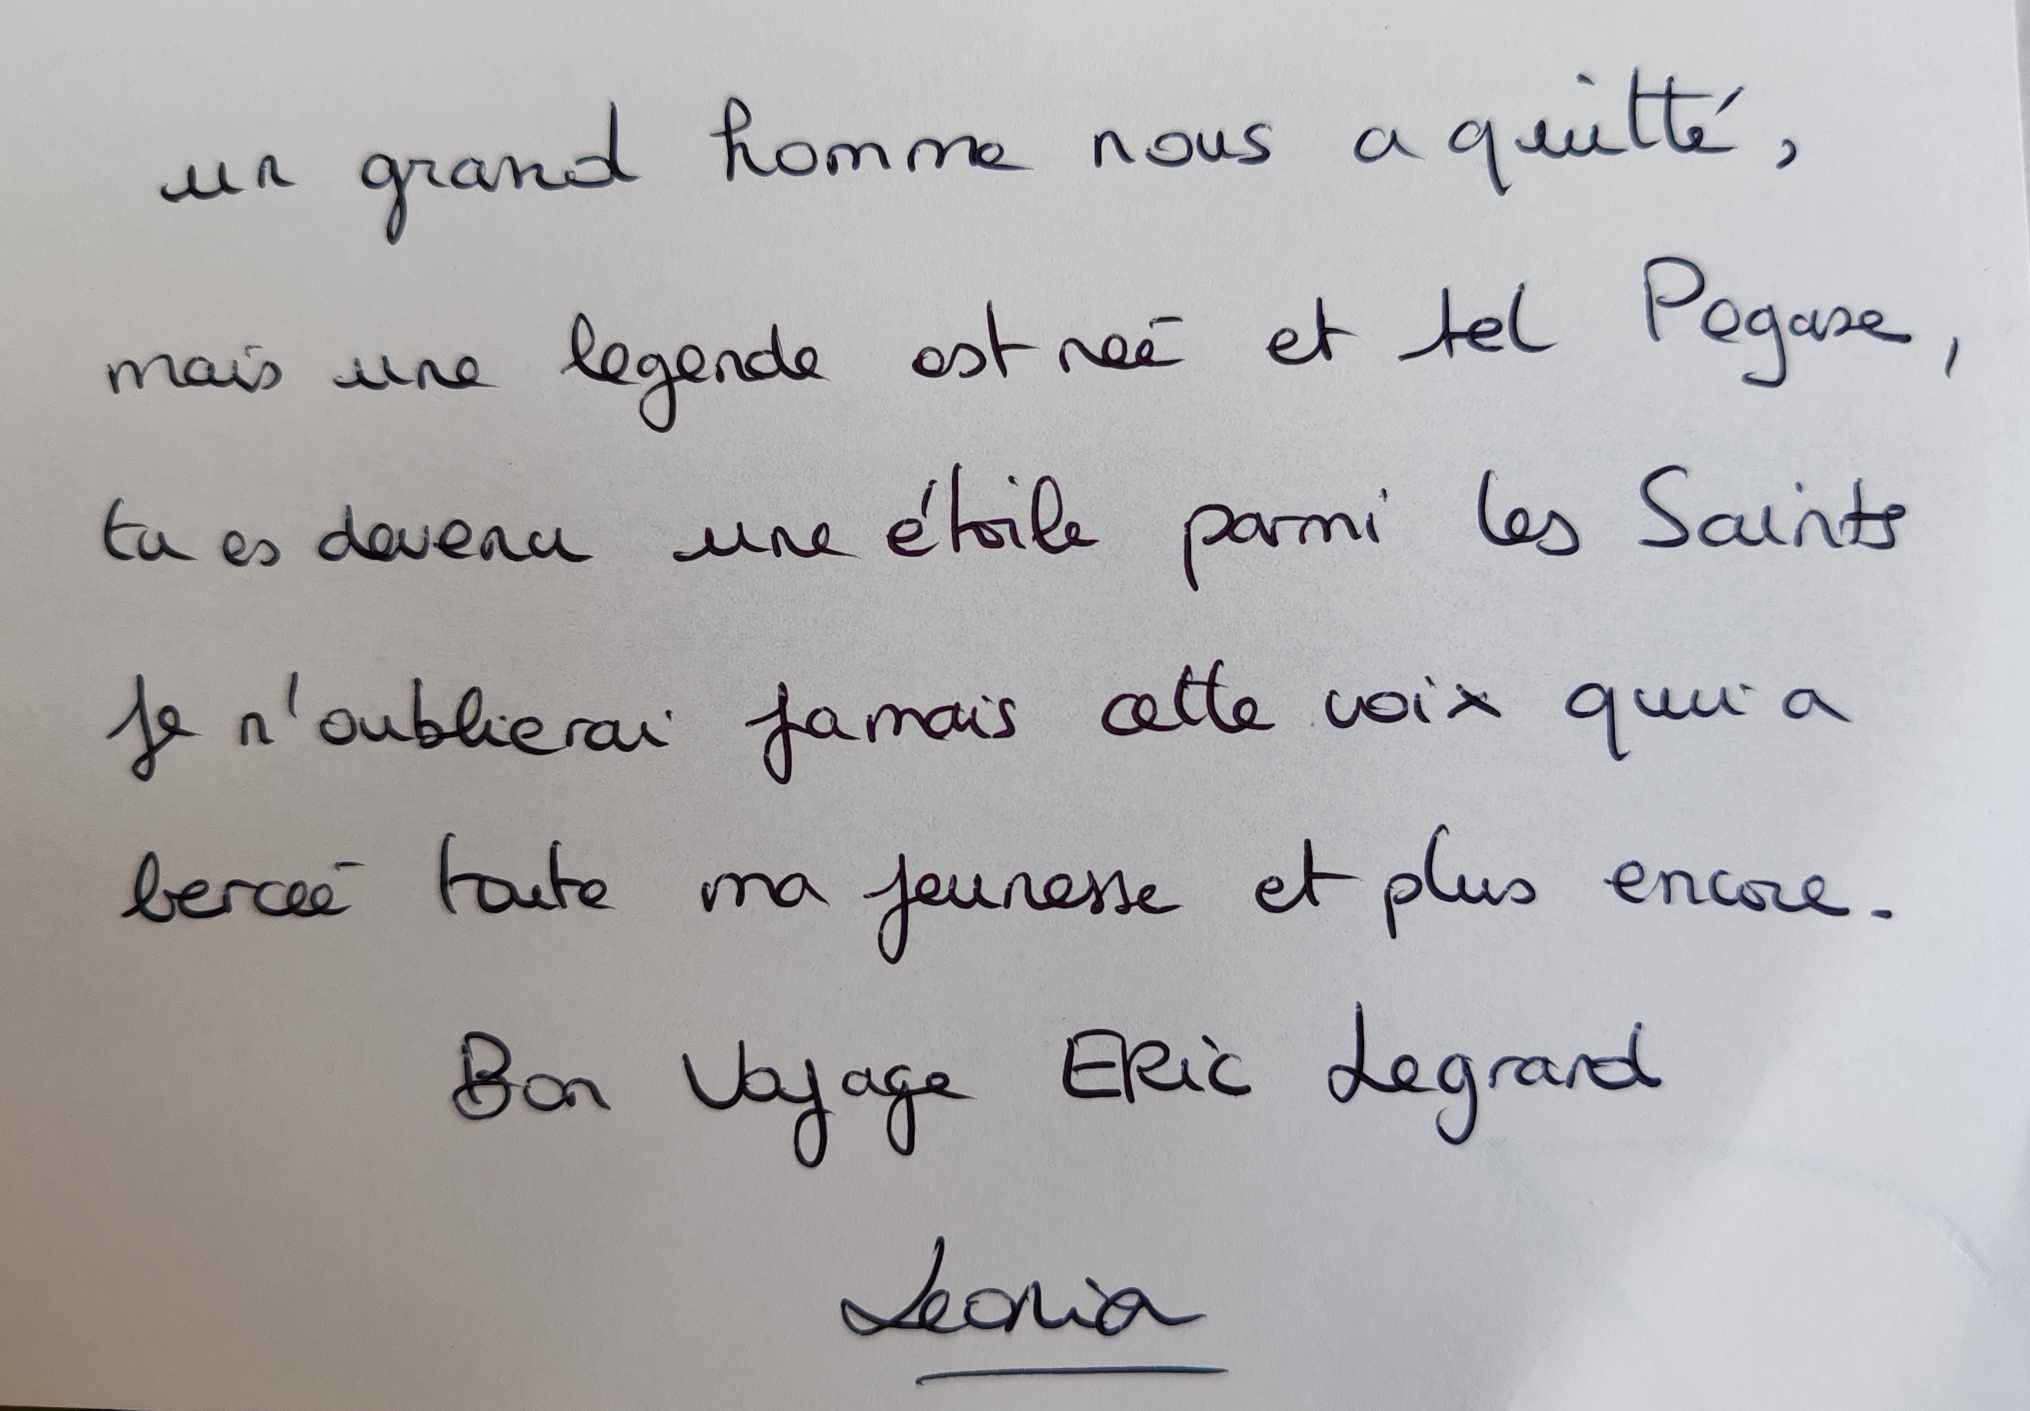 un grand homme nous a quitté,
mais une legende est née et tel Pegase,
tu es devenu une étoile parmi les Saints
Je n'oublierai jamais cette voix qui a
bercée toute ma jeunesse et plus encore.
Bon Voyage ERic Legrand
Leonia